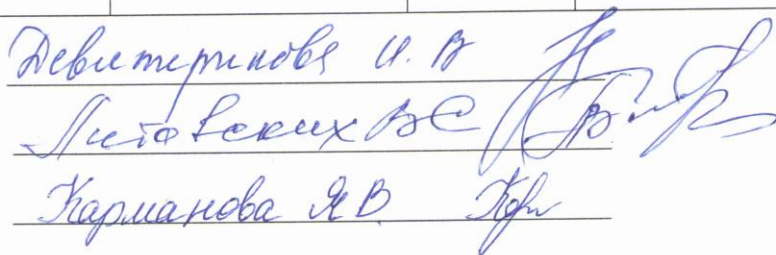 Девитерикова И. В
Литовских В С
Карманова Я В.